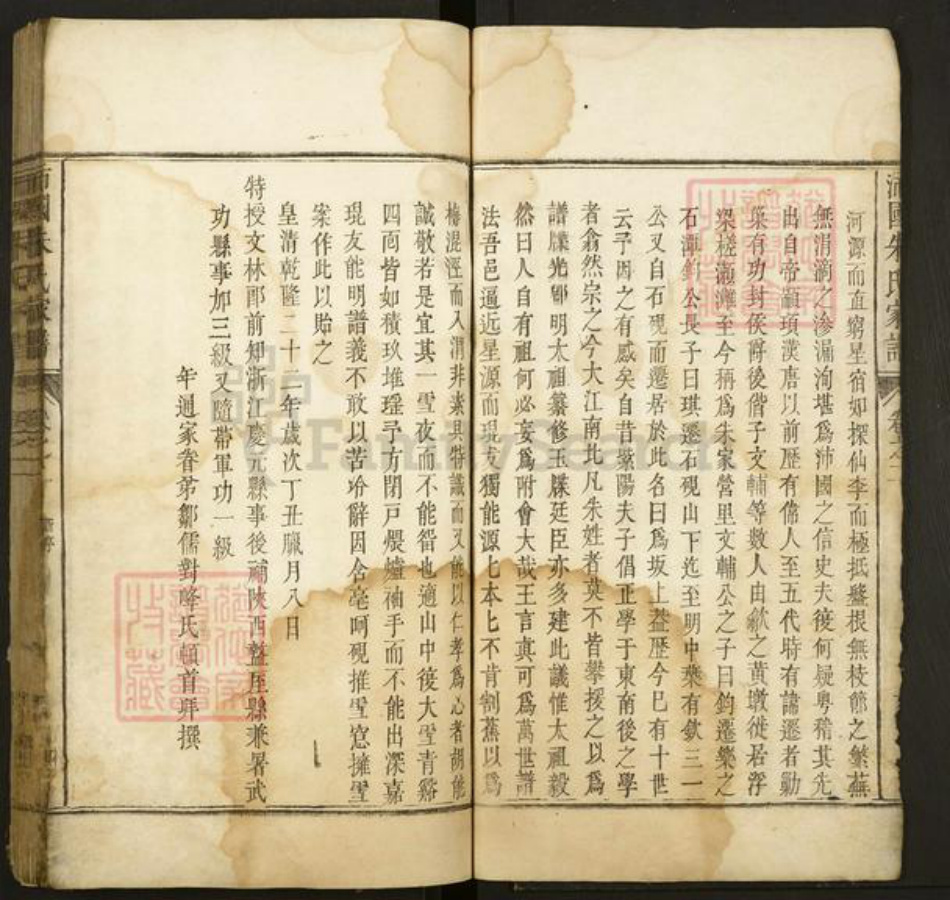 沛國朱氏家譜
河源而直窮星宿如探仙李而極抵盤根無枝節之繁蕪
無涓滴之滲漏洵堪為沛國之信史夫復何疑粤稽其先
出自帝顓頊漢唐以前歷有偉人至五代時有諱遷者勦
巢有功封侯爵後偕子文輔等數人由歙之黃墩徙居浮
梁槎灘灘至今稱為朱家營里文輔公之子曰鈞遷樂之
石潭鈞公長子曰琪遷石硯山下迄至明中葉有欽三一
公又自石硯而遷居於此名曰爲坂上葢歷今巳有十世
云予因之有感矣自昔紫陽夫子倡正學于東南後之學
者翕然宗之今大江南北凡朱姓者莫不皆攀援之以爲
譜牒光卽明太祖纂修玉牒廷臣亦多建此議惟太祖毅
然曰人自有祖何必妄爲附會大哉王言真可爲萬世譜
法吾邑逼近星源而琨友獨能源七本七不肯割蕉以爲
梅混涇而入渭非素具特識而又能以仁孝爲心者胡能
誠敬若是宜其一雪夜而不能㫺也適山中後大雪青谿
四面皆如積玖堆瑶予方閉戸煨爐袖手而不能出深嘉
琨友能明譜義不敢以苦冷辭因含毫呵硯推雪窓擁雪
案作此以貽之
皇清乾隆二十二年歲次丁丑臘月八日
特授文林郎前知浙江慶元縣事後補陜西盩厔縣兼署武
功縣事加三級又隨帶軍功一級
年通家眷弟鄒儒對峰氏頓首拜撰
沛國朱氏家譜
FamilySearch